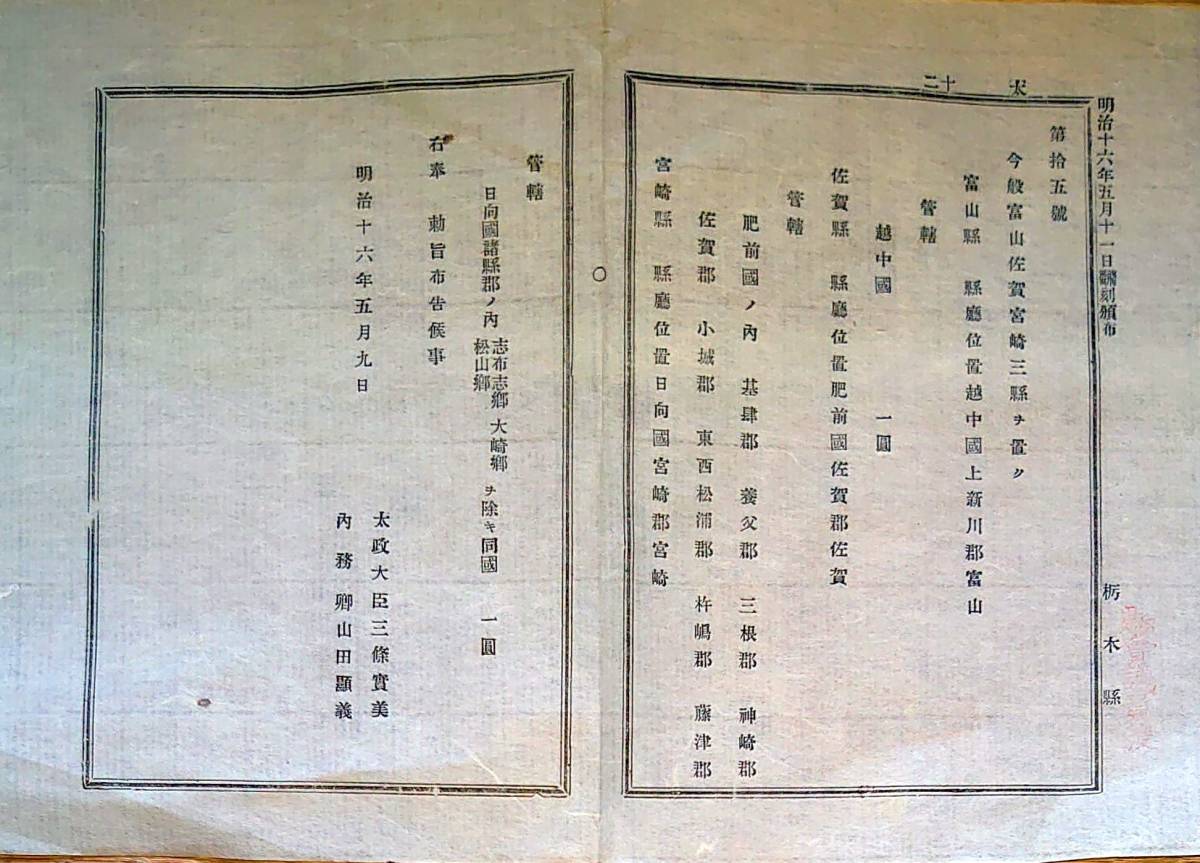 明治十六年五月十一日飜刻頒布
栃木縣
太
十二
第拾五號
今般富山佐賀宮崎三縣ヲ置ク
富山縣 縣廳位置越中國上新川郡富山
管轄
越中國 一圓
佐賀縣 縣廳位置肥前國佐賀郡佐賀
管轄
肥前國ノ內 基肆郡 養父郡 三根郡 神崎郡
佐賀郡 小城郡 東西松浦郡 杵嶋郡 藤津郡
宮崎縣 縣廳位置日向國宮崎郡宮崎
〇
管轄
日向國諸縣郡ノ內 志布志鄉 大崎鄉 松山鄉 ヲ除キ同國 一圓
右奉 勅旨布告候事
明治十六年五月九日
太政大臣三條實美
內務卿山田顯義